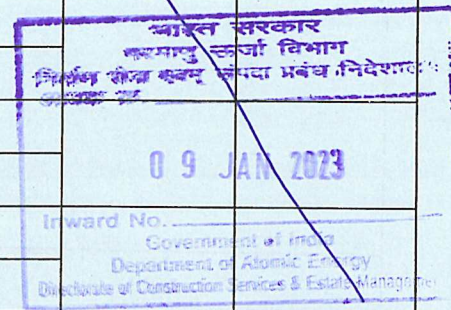 भारत सरकार
परमाणु ऊर्जा विभाग
निर्माण सेवा एवम् संपदा प्रबंध निदेशालय
09 JAN 2023
Inward No.
Government of India
Department of Atomic Energy
Directorate of Construction Services & Estate Managemen